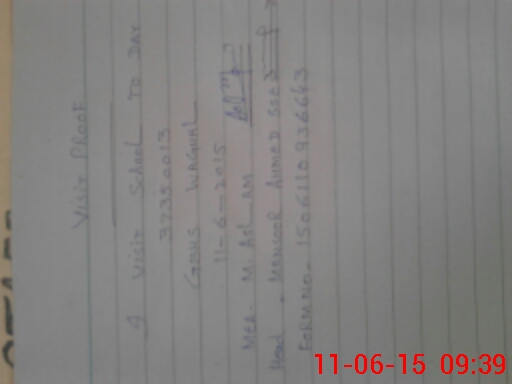 Visit PRooF
I Visit School To DAY
37350013
GOBUS WAGHAL
11-6-2015
MEA. M. ASLAM
Head. MANZOOR AHMED SSE
FORM NO. 1506110936643
11-06-15 09:39